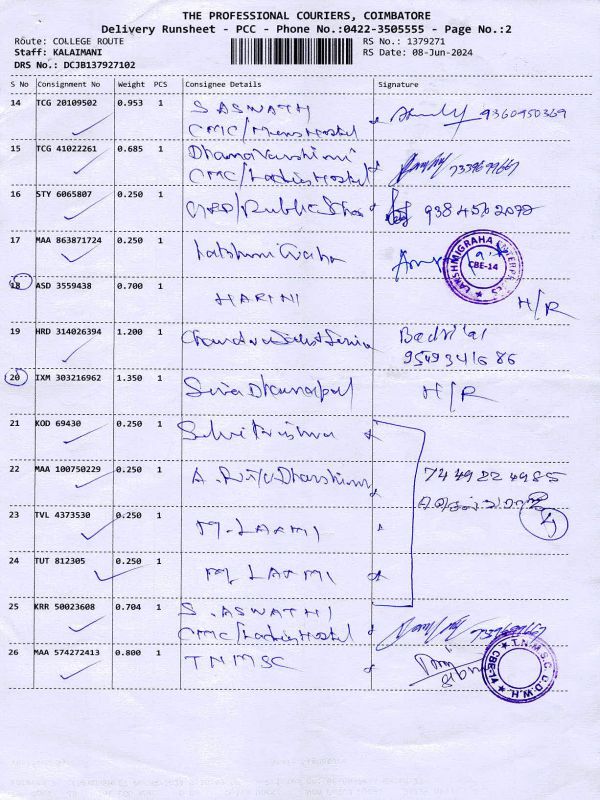 THE PROFESSIONAL COURIERS, COIMBATORE
Delivery Runsheet - PCC - Phone No.:0422-3505555 - Page No.:2
Route: COLLEGE ROUTE RS No.: 1379271
Staff: KALAIMANI RS Date: 08-Jun-2024
DRS No.: DCJB137927102
S No Consignment No Weight PCS Consignee Details Signature
14 TCG 20109502 0.953 1 S ASWATH 9360950369
CMC/Mens Hostel
15 TCG 41022261 0.685 1 Dhana Varshini
CMC/Ladies Hostel
16 STY 6065807 0.250 1
17 MAA 863871724 0.250 1 Lakshmi Graha
LAKSHMIGRAHA ENTERPRISES CBE-14
18 ASD 3559438 0.700 1 HARINI H/R
19 HRD 314026394 1.200 1 Badrilal
9549341686
20 IXM 303216962 1.350 1 Siva Dhanapal H/R
21 KOD 69430 0.250 1 Selvi Krishna
22 MAA 100750229 0.250 1 7449224985
23 TVL 4373530 0.250 1 M. LAXMI 4
24 TUT 812305 0.250 1 M LAXMI
25 KRR 50023608 0.704 1 S. ASWATHI
CMC/Ladies Hostel
26 MAA 574272413 0.800 1 TNMSC
T.N.M.S.C. D.W.H. CBE-14